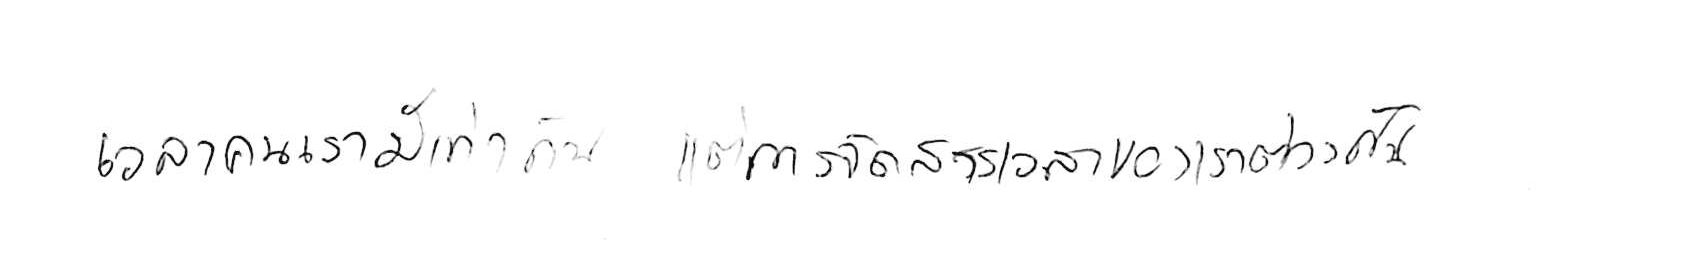 เวลาคนเรามีเท่ากัน แต่การจัดสรรเวลาของเราต่างกัน